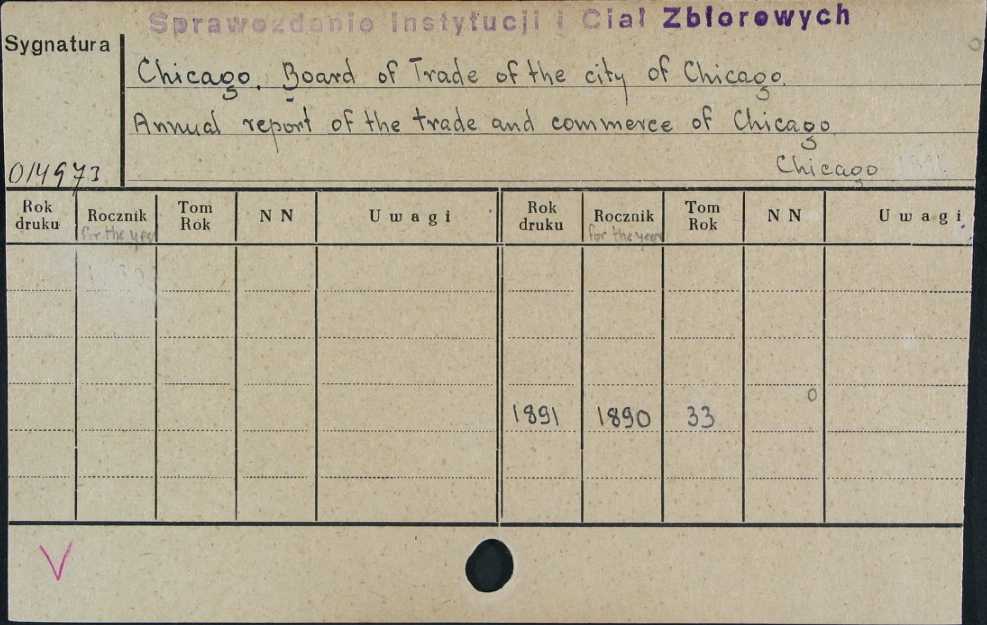 Sprawozdanie Instytucji i Ciał Zbiorowych
Sygnatura
Chicago. Board of Trade of the city of Chicago.
Annual report of the trade and commerce of Chicago
Chicago
014973
Rok druku Rocznik for the year Tom Rok NN Uwagi Rok druku Rocznik for the year Tom Rok NN Uwagi
1891 1890 33
V